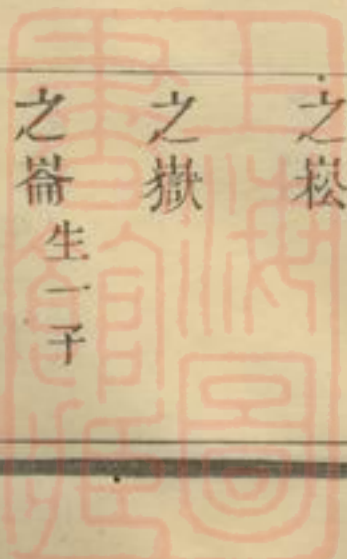 之崧
之嶽
之崙 生一子
上海圖書館藏